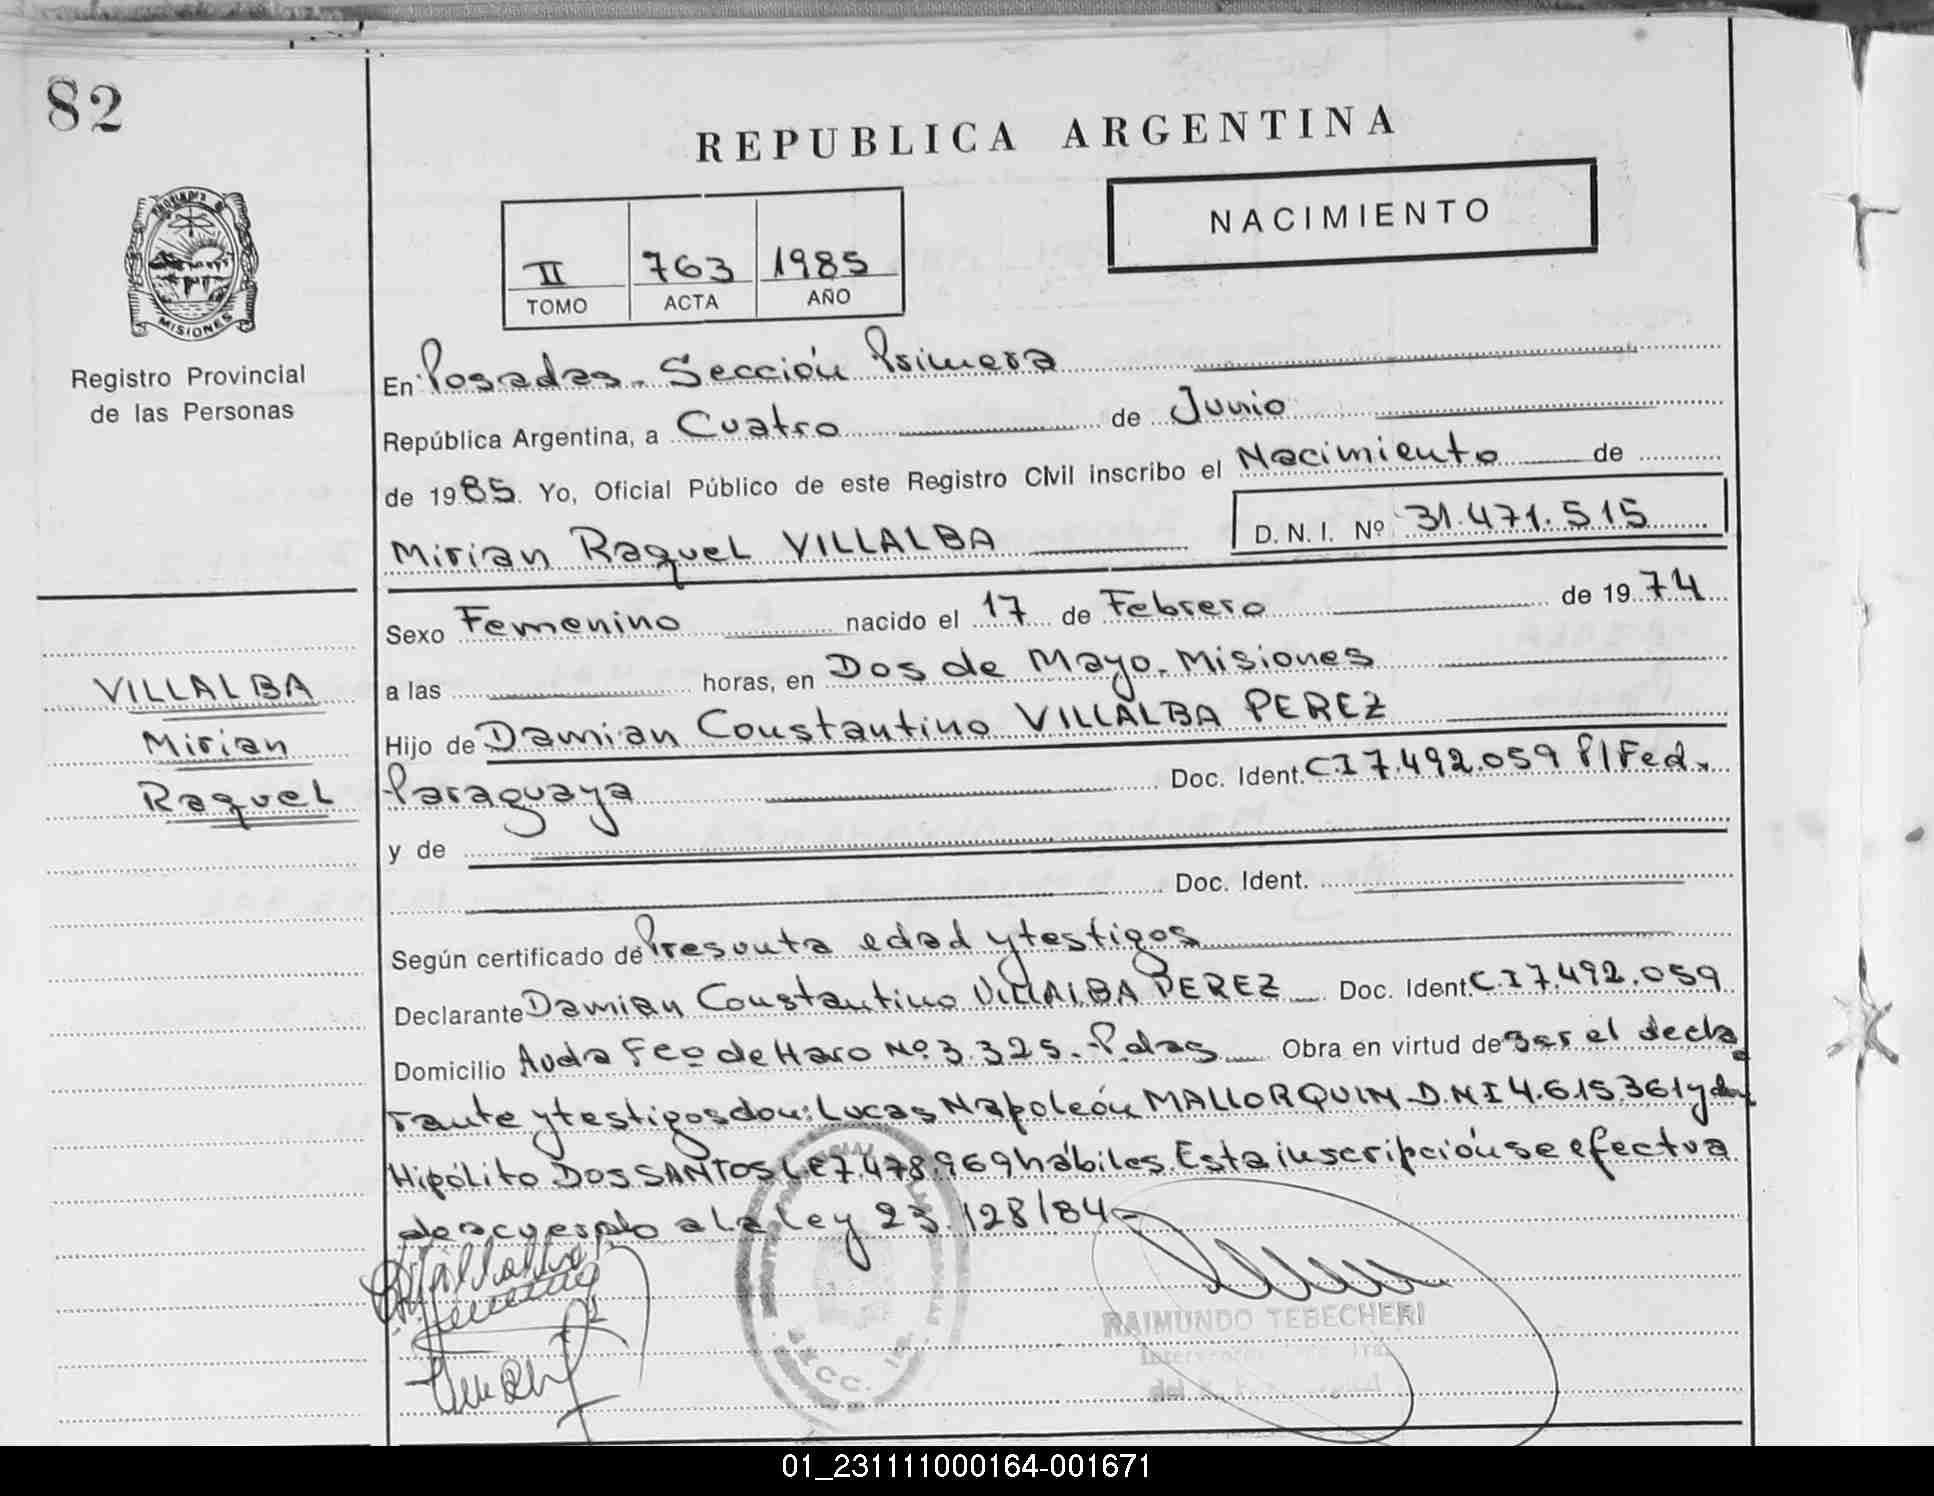 82
REPUBLICA ARGENTINA
NACIMIENTO
II 763 1985
TOMO ACTA AÑO
MISIONES
Registro Provincial
de las Personas
En Posadas. Sección Primera
República Argentina, a Cuatro de Junio
de 1985. Yo, Oficial Público de este Registro Civil inscribo el Nacimiento de
Mirian Raquel VILLALBA D.N.I. Nº 31.471.515
Sexo Femenino nacido el 17 de Febrero de 1974
a las horas, en Dos de Mayo. Misiones
Hijo de Damian Constantino VILLALBA PEREZ
Paraguaya Doc. Ident. C.I 7.492.059 P/Fed.
y de
Doc. Ident.
VILLALBA
Mirian
Raquel
Según certificado de Presunta edad y testigos
Declarante Damian Constantino VILLALBA PEREZ Doc. Ident. C.I 7.492.059
Domicilio Avda Fco de Haro Nº 3.325. P.das Obra en virtud de ser el decla
rante y testigos don: Lucas Napoleón MALLORQUIN D.N.I 4.615.361 y don
Hipólito DOS SANTOS L.E 7.478.969 hábiles. Esta inscripción se efectua
de acuerdo a la Ley 23.128/84-
RAIMUNDO TEBECHERI
SECC. 1ra.
01_231111000164-001671